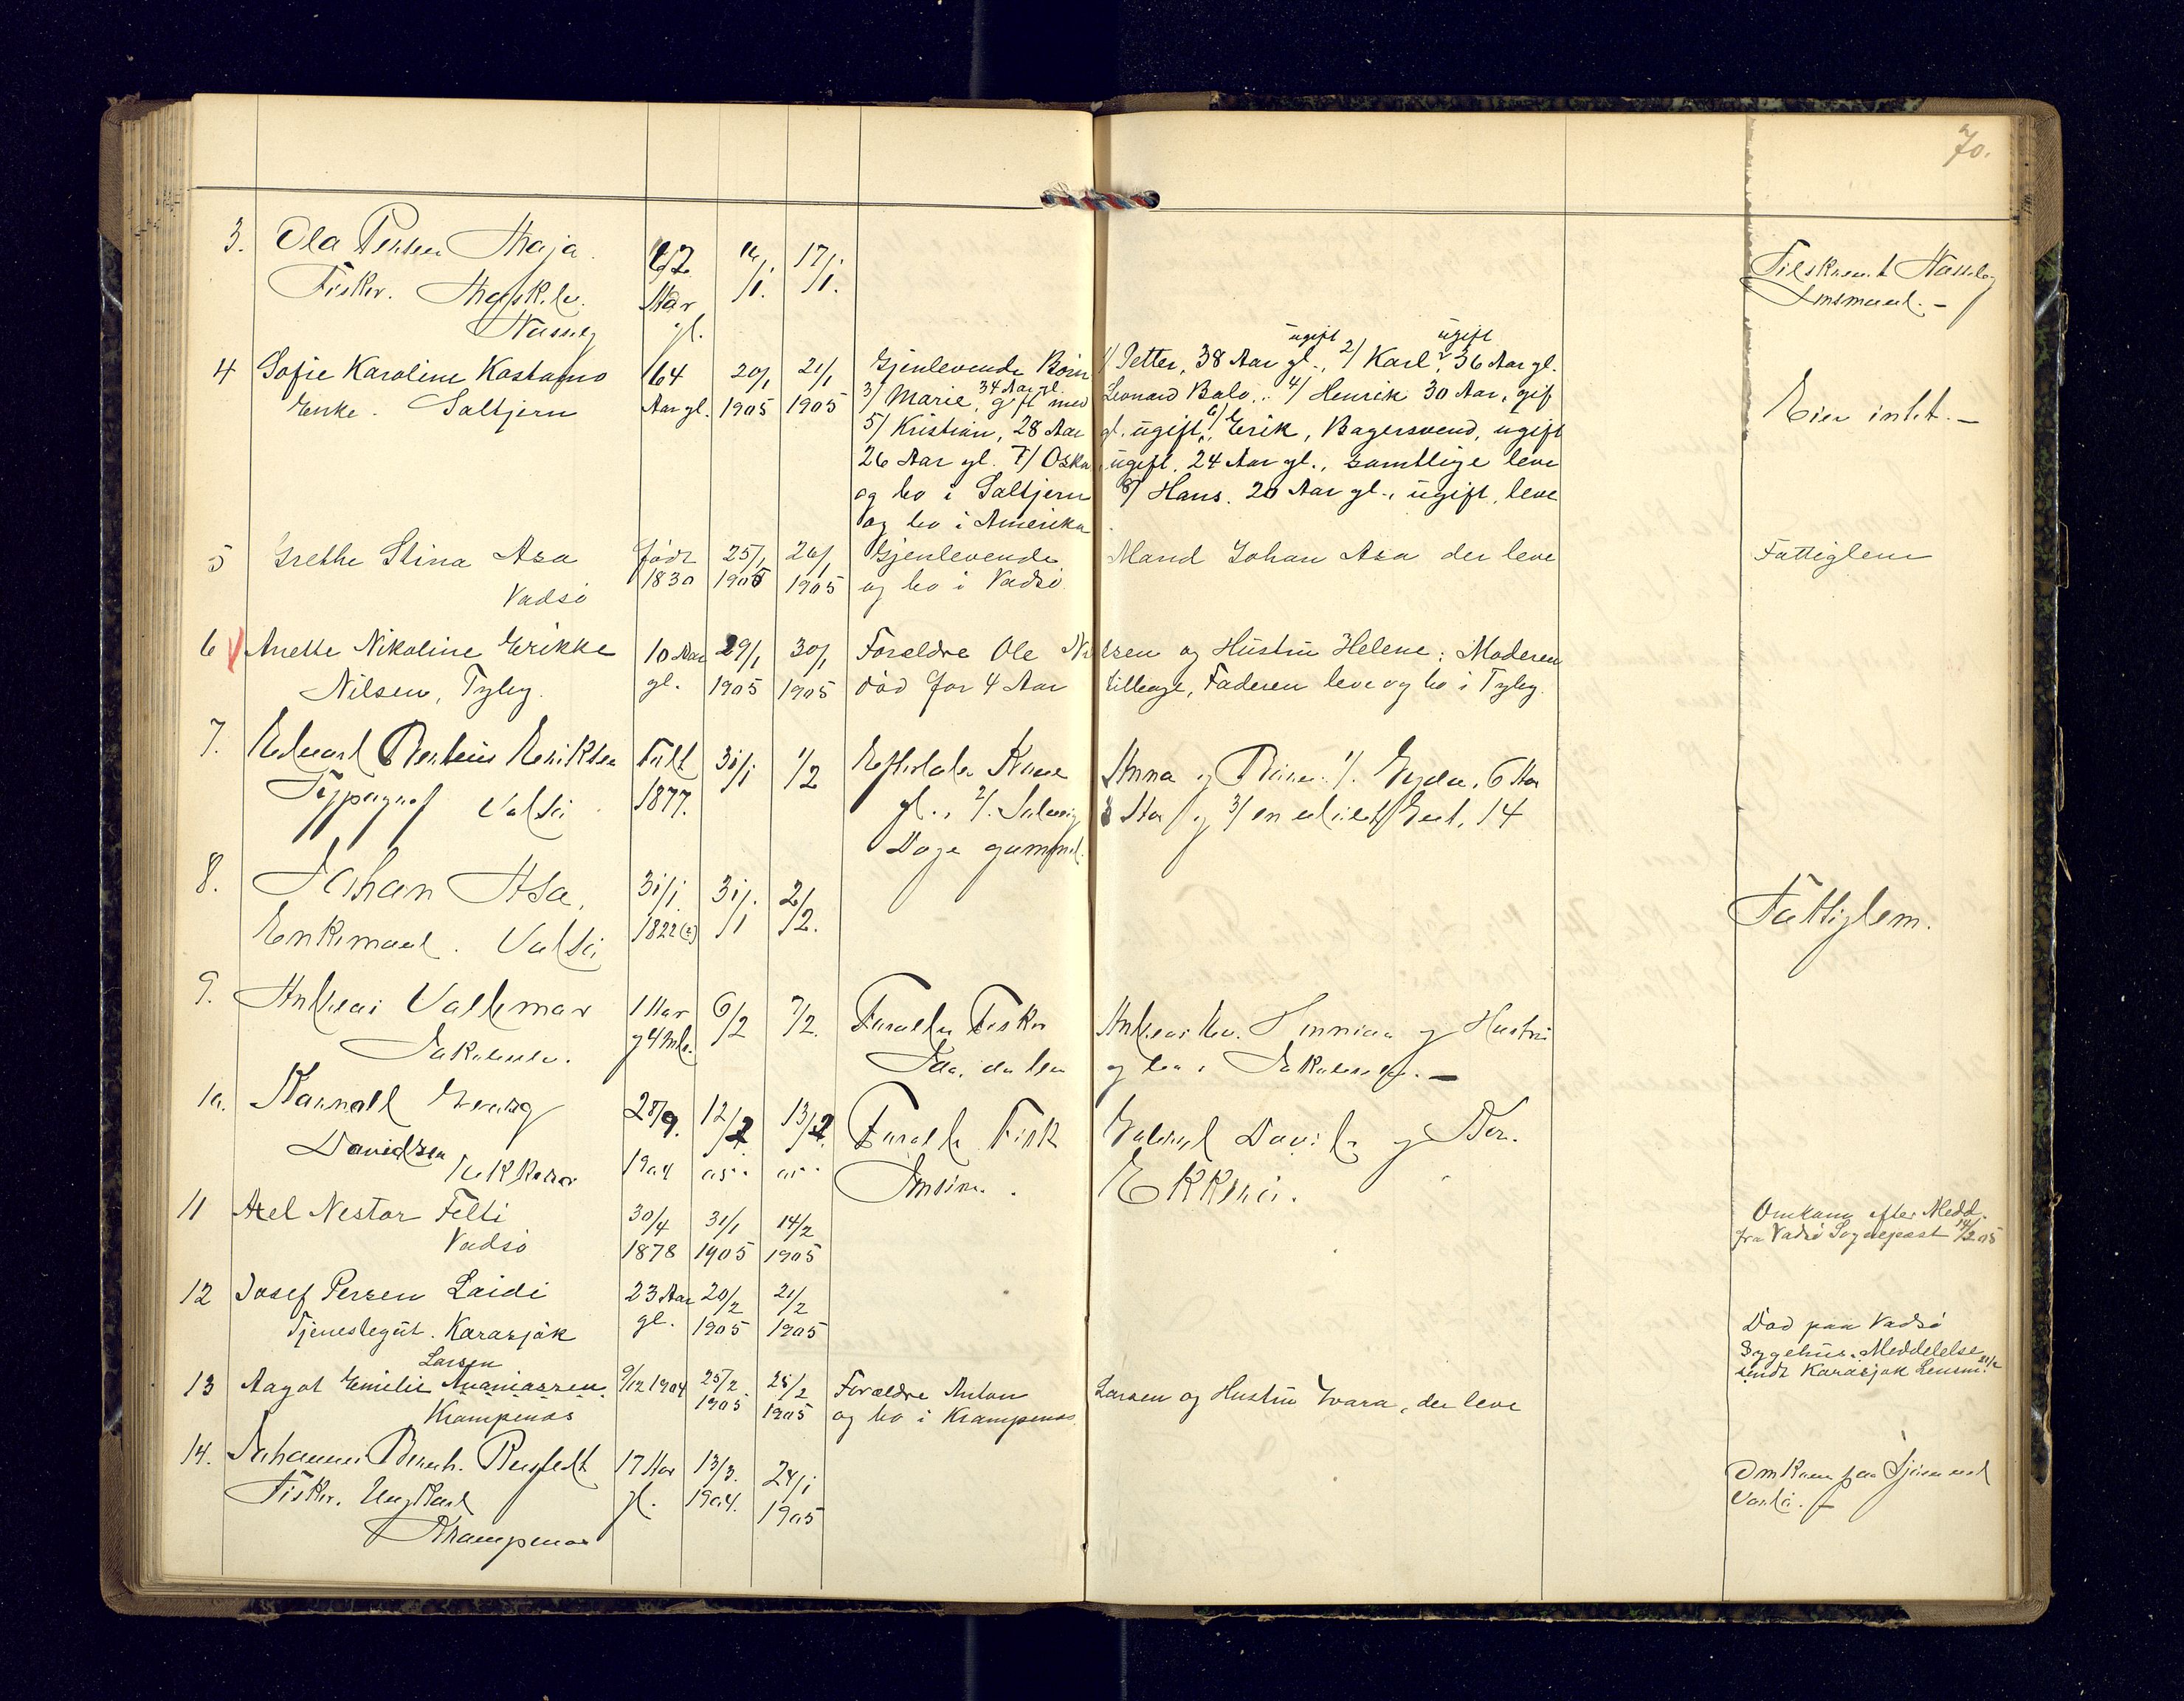 70.
3. Ola Persen Maja. 62 16/1. 17/1.
Fisker. Aar Tilskrevet Næsseby
Næsseby gl. Lensmand. -
ugift ugift
4 Sofie Karoline Kostamo 64 20/1 21/1 Gjenlevende Børn 1/ Petter, 38 Aar gl., 2/ Karl, 36 Aar gl.
Enke. Saltjern Aar gl. 1905 1905 3/ Marie, 34 Aar gl. gift med Leonard Balo, 4/ Henrik 30 Aar, gift Eier intet. -
5/ Kristian, 28 Aar gl. ugift, 6/ Erik, Bagersvend, ugift
26 Aar gl. 7/ Oskar ugift, 24 Aar gl., samtlige leve
og bo i Saltjern 8/ Hans. 20 Aar gl., ugift, leve
og bo i Amerika.
5 Grethe Stina Asa født 25/1 26/1 Gjenlevende Mand Johan Asa der leve Fattiglem
Vadsö 1830 1905 1905 og bo i Vadsö.
6 Anette Nikoline Erikke 10 Aar 29/1 30/1 Foreldre Ole Nilsen og Hustru Helene; Moderen
Nilsen, Tyby. gl. 1905 1905 död for 4 Aar tilbage, Faderen leve og bo i Tyby.
7. Edvard Berteus Eriksen Født 31/1 1/2 Efterlader Kone Anna og Børn: 1/. Gyda, 6 Aar
Typograf Vadsö 1877. gl., 2/. Solveig 3 Aar og 3/ en udöbt Gut, 14
Dage gammel.
8. Johan Asa, 31/1 31/1 2/2. Fattiglem.
Enkemand. Vadsö 1822(?)
9. Andreas Valdemar 1 Aar 6/2 7/2. Foreldre Fisker Andreas og Hustru
Jakobselv. og 4 Mdr. Ida, der leve og bo i Jakobselv. -
10. Harnall Georg 28/9. 12/2 13/2. Foreldre Fisk Gabriel Davids og
Davidsen Ekkerö 1904 05 05 Ekkerö.
11 Axel Nestor Felti 30/4 31/1 14/2 Omkom efter Medd.
Vadsö 1878 1905 1905 fra Vadsö Sogneprest 14/2 05
12 Josef Persen Laidi 23 Aar 20/2 21/2 Död paa Vadsö
Tjenestegut. Karasjok gl. 1905 1905 Sygehus. Meddelelse
sendt Karasjok Lensm. 21/2
Larsen
13 Aagot Emilie Ananiassen. 9/12 1904 25/2 28/2 Forældre Anton Larsen og Hustru Ivara, der leve
Krampenæs 1905 1905 og bo i Krampenæs.
14. Johannes Bernh. Rusfeldt 17 Aar 13/3. 24/1 Omkom paa Sjöen ved
Fisker. Ungkarl gl. 1904. 1905 Vardö. -
Krampenæs